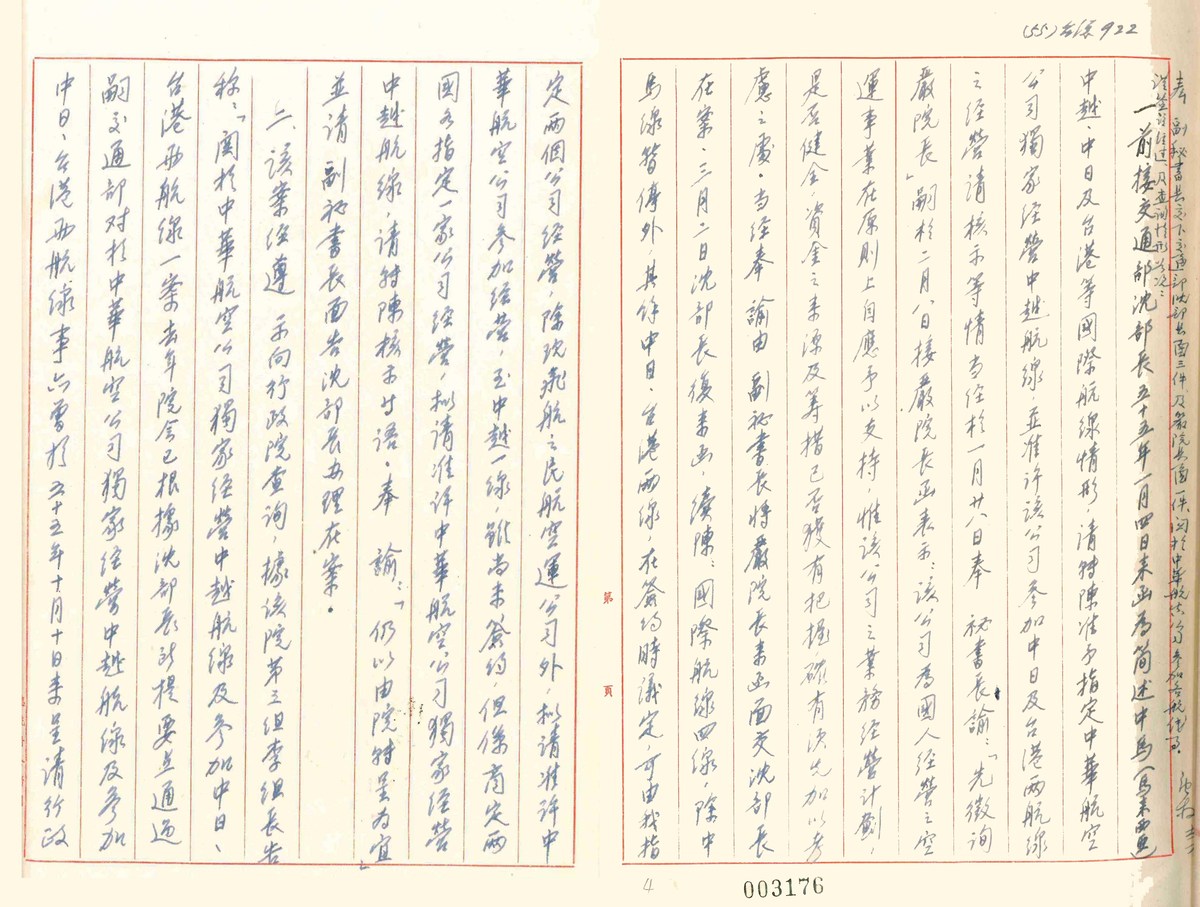 (55)台孫922
奉 副秘書長交下交通部沈部長函三件及嚴院長函一件關於中華航空公司參加各航線事
一前接交通部沈部長五十五年一月四日來函為簡述中馬(馬來西亞)
中越、中日及台港等國際航線情形,請特陳准予指定中華航空
公司獨家經營中越航線,並准許該公司參加中日及台港兩航線
之經營請核示等情當經於一月廿八日奉 秘書長諭:「先徵詢
嚴院長」嗣於二月八日接嚴院長函表示:該公司為國人經營之空
運事業在原則上自應予以支持,惟該公司之業務經營計劃,
是否健全,資金之來源及籌措已否獲有把握,確有須先加以考
慮之處。當經奉 諭由 副秘書長將嚴院長來函面交沈部長
在案。三月二日沈部長復來函,續陳:國際航線四線,除中
馬線暫停外,其餘中日、台港兩線,在簽約時議定,可由我指
定兩個公司經營,除現飛航之民航空運公司外,擬請准許中
華航空公司參加經營,至中越一線,雖尚未簽約,但係商定兩
國各指定一家公司經營,擬請准許中華航空公司獨家經營
中越航線,請特陳核示寸語。奉 諭:「仍以由院特呈為宜」
並請 副秘書長面告沈部長辦理在案。
二、該案經遵 示向行政院查詢,據該院第三組李組長告
稱:「關於中華航空公司獨家經營中越航線及參加中日、
台港兩航線一案去年院會已根據沈部長所提要點通過
嗣交通部對於中華航空公司獨家經營中越航線及參加
中日、台港兩航線事亦曾於五十五年十月十日來呈請行政
第
頁
4
003176